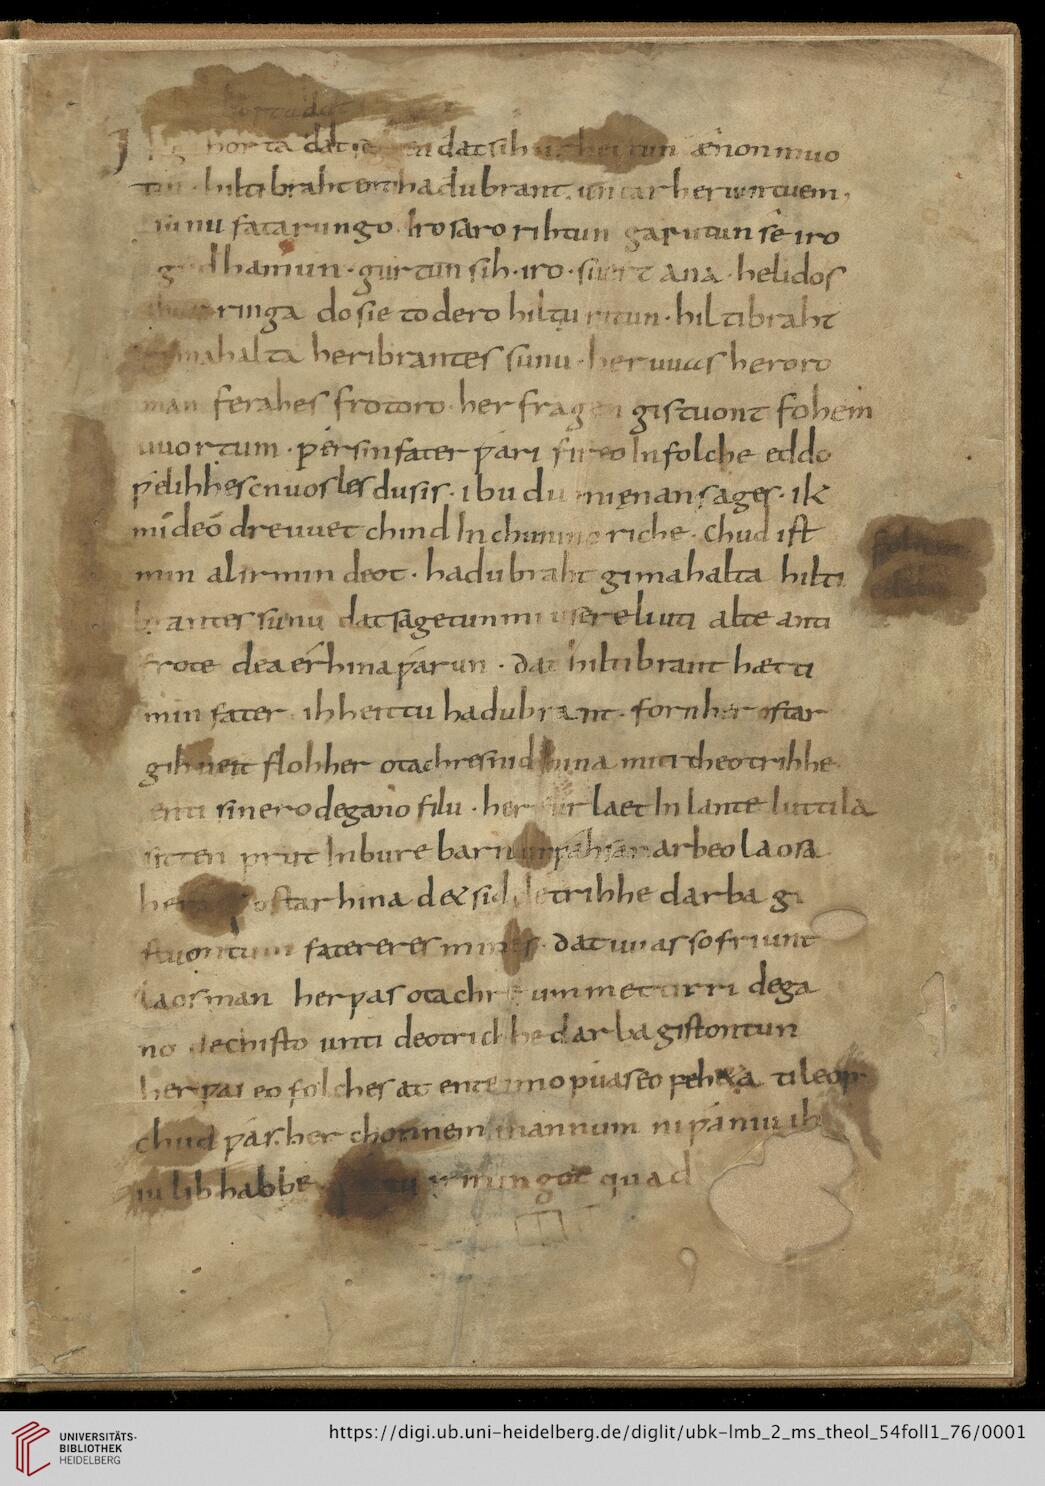 Ik gihorta dat seggen dat sih urhettun ænon muo
tin · hiltibraht enti hadubrant · untar heriun tuem ·
sunu fatarungo · iro saro rihtun garutun se iro
gudhamun · gurtun sih · iro · suert ana · helidos
ringa do sie to dero hiltiu ritun · hiltibraht
gimahalta heribrantes sunu · her uuas heroro
man ferahes frotoro · her fragen gistuont fohem
uuortum · ƿer sin fater ƿari fireo In folche eddo
ƿelihhes cnuosles du sis · ibu du mi ęnan sages · ik
mi de odre uuet chind In chunincriche · Chud ist
min al irmin deot · hadubraht gimahalta hilti
brantes sunu dat sagetun mi usere liuti alte anti
frote dea érhina ƿarun · dat hiltibrant hætti
min fater · ih heittu hadubrant · forn her ostar
gihueit floh her otachres nid hina miti theotrihhe ·
enti sinero degano filu · her furlaet In lante luttila
sitten prut In bure barn unƿahsan arbeo laosa
her ostar hina det sid detrihhe darba gi
stuontum fatereres mines · dat uuas so friunt
laos man her ƿas otachre ummettirri dega
no dechisto unti deotrichhe darba gistontun
her ƿas eo folches at ente imo ƿuas eo feheta ti leop
chud ƿas her chonnem mannum ni ƿaniu ih
iu lib habbe irmingot quad
UNIVERSITÄTS-
BIBLIOTHEK
HEIDELBERG
https://digi.ub.uni-heidelberg.de/diglit/ubk-lmb_2_ms_theol_54foll1_76/0001